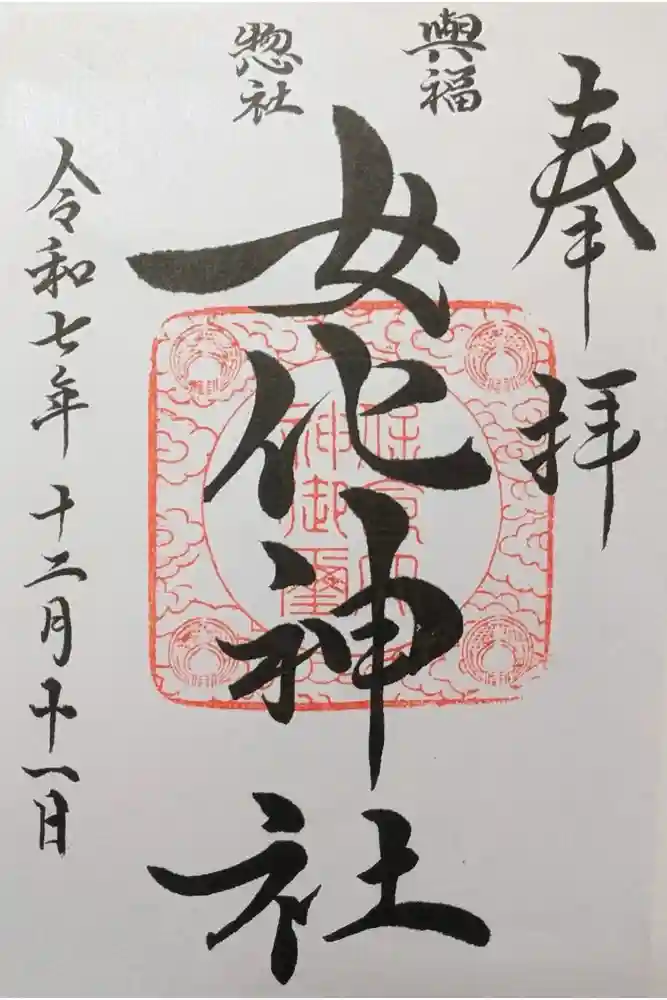 奉拝
興福
惣社
女化神社
令和七年 十二月十一日